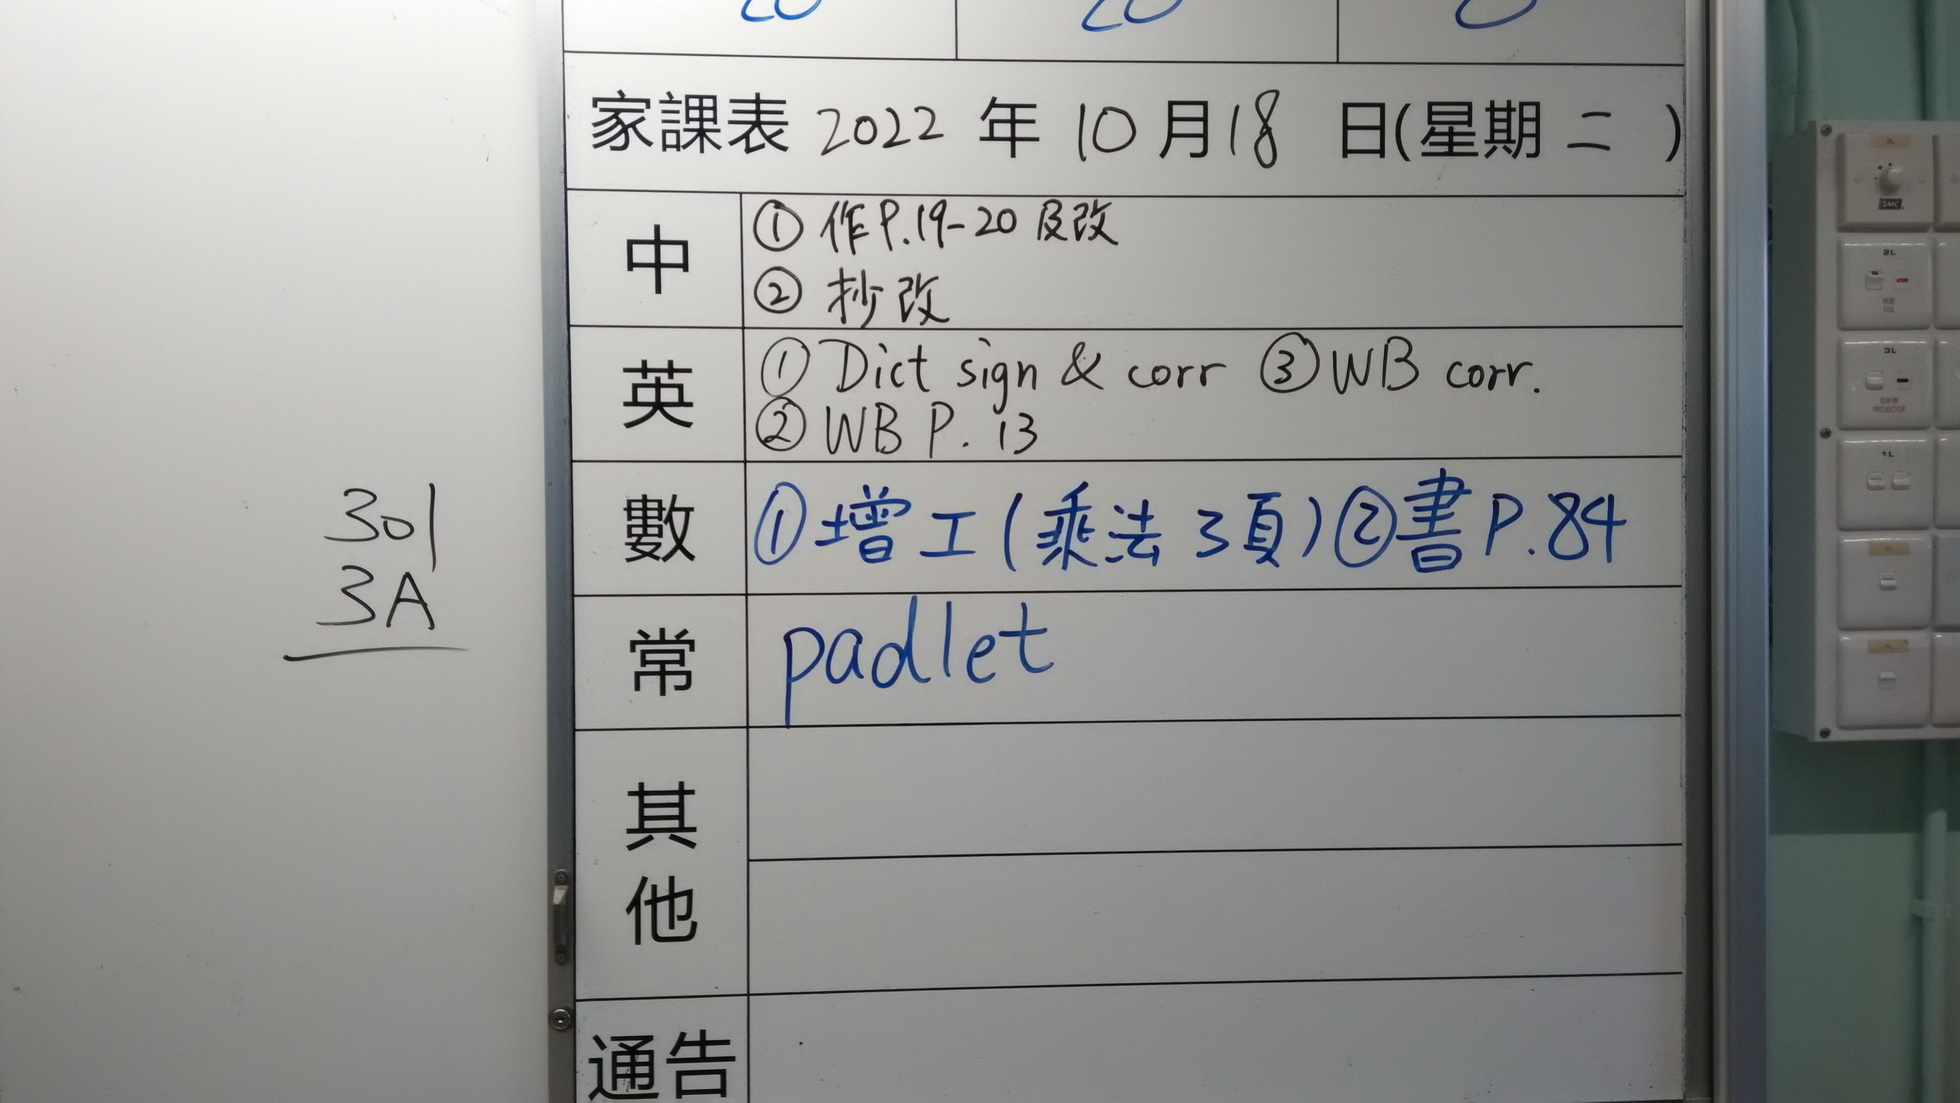 301
3A
家課表 2022 年 10 月 18 日(星期 二 )
中
① 作P.19-20 及改
② 抄改
英
① Dict sign & corr ③ WB corr.
② WB P. 13
數
① 增工(乘法3頁) ② 書P.84
常
padlet
其他
通告
2L
3L
PROJECTOR
1L